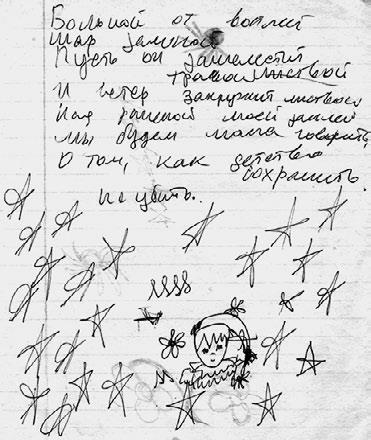 Больной от воплей
шар земной
Пусть он зашелестит
травой листвой
И ветер закружит листвою
Над раненой моей землей
Мы будем мама говорить,
О том, как детство
сохранить.
Не убить.